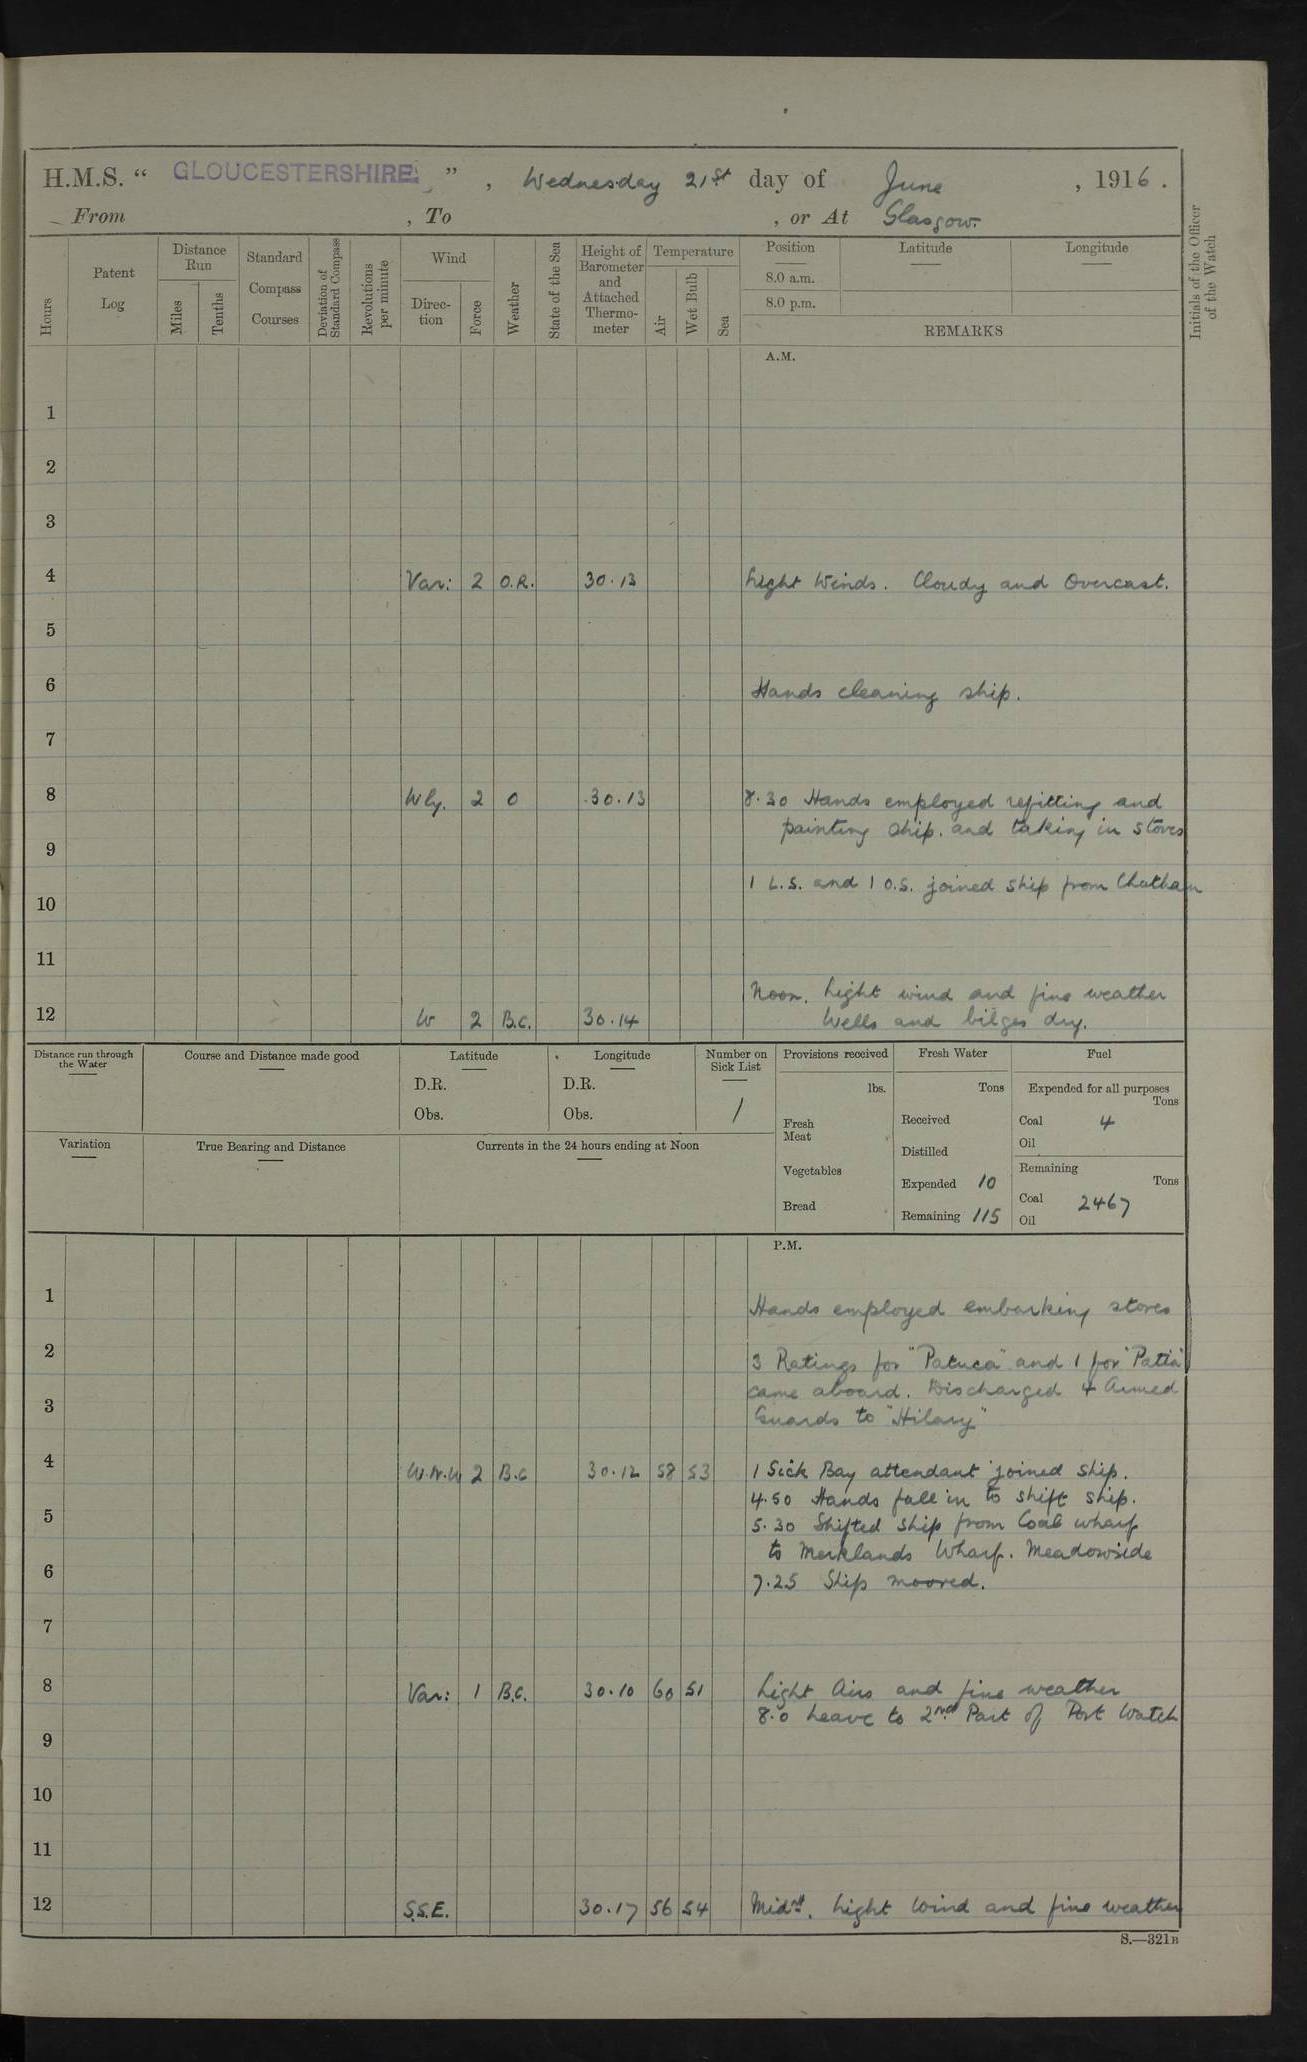 H.M.S. “ GLOUCESTERSHIRE ” , Wednesday 21st day of June , 1916 .
From , To , or At Glasgow.
Hours
Patent Log
Distance Run
Miles
Tenths
Standard Compass Courses
Deviation of Standard Compass
Revolutions per minute
Wind
Direc-tion
Force
Weather
State of the Sea
Height of Barometer and Attached Thermo-meter
Temperature
Air
Wet Bulb
Sea
Position Latitude Longitude
8.0 a.m.
8.0 p.m.
REMARKS
Initials of the Officer of the Watch
A.M.
1
2
3
4 Var: 2 O.R. 30.13 Light Winds. Cloudy and Overcast.
5
6 Hands cleaning ship.
7
8 Wly. 2 O 30.13 8.30 Hands employed refitting and
painting ship. and taking in stores
9
1 L.S. and 1 O.S. joined ship from Chatham
10
11
Noon. Light wind and fine weather
12 W 2 B.C. 30.14 Wells and bilges dry.
Distance run through the Water
Course and Distance made good
Latitude
D.R.
Obs.
Longitude
D.R.
Obs.
Number on Sick List
1
Variation
True Bearing and Distance
Currents in the 24 hours ending at Noon
Provisions received
lbs.
Fresh Meat
Vegetables
Bread
Fresh Water
Tons
Received
Distilled
Expended 10
Remaining 115
Fuel
Expended for all purposes
Tons
Coal 4
Oil
Remaining
Tons
Coal 2467
Oil
P.M.
1 Hands employed embarking stores
2 3 Ratings for "Patuca" and 1 for "Patia"
came aboard. Discharged 4 Armed
3 Guards to "Hilary"
4 W.N.W 2 B.C 30.12 58 53 1 Sick Bay attendant joined ship.
4.50 Hands fall in to shift ship.
5 5.30 Shifted ship from Coal wharf
to Merklands Wharf. Meadowside
6 7.25 Ship moored.
7
8 Var: 1 B.C. 30.10 60 51 Light Airs and fine weather
8.0 Leave to 2nd Part of Port Watch
9
10
11
12 S.S.E. 30.17 56 54 Midnt. Light wind and fine weather
S.—321B